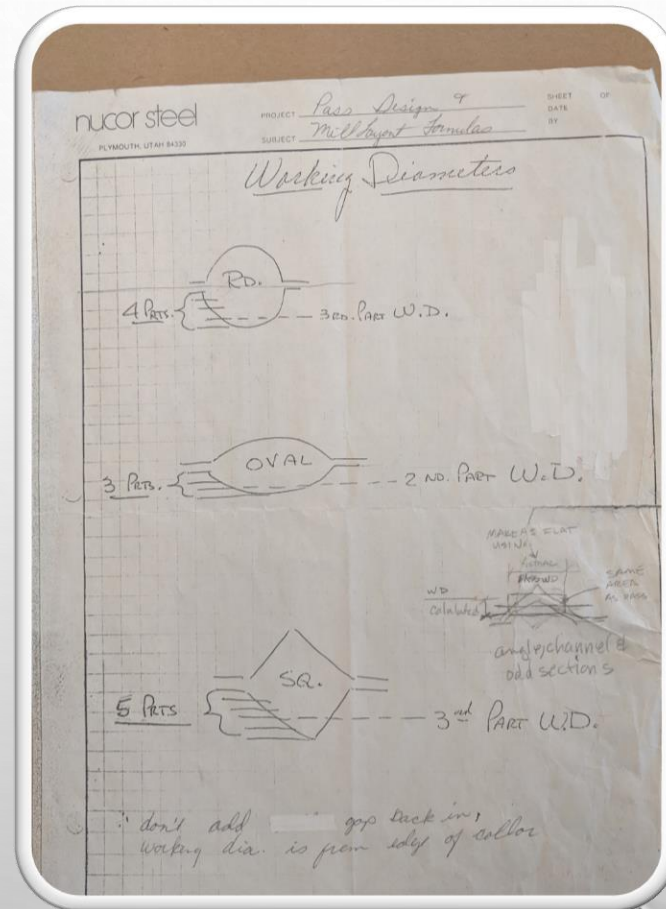 nucor steel
PLYMOUTH, UTAH 84330
PROJECT Pass Design &
SUBJECT Mill Layout Formulas
SHEET OF
DATE
BY
Working Diameters
RD.
4 PRTS.
3RD. PART W.D.
OVAL
3 PRTS.
2 ND. PART W.D.
MAKE AS FLAT
USING
ACTUAL
WD
calculated
SAME
AREA
AS PASS
angle, channel &
odd sections
SQ.
5 PRTS
3rd PART W.D.
don't add gap back in,
working dia. is from edge of collar